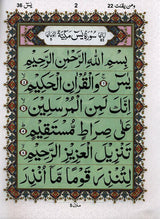 يٰسٓ 36
2
ومن يقنت 22
سُورَةُ يٰسٓ مَكِّيَّةٌ
بِسْمِ اللهِ الرَّحْمٰنِ الرَّحِيْمِ
يٰسٓ وَالْقُرْاٰنِ الْحَكِيْمِ
اِنَّكَ لَمِنَ الْمُرْسَلِيْنَ
عَلٰى صِرَاطٍ مُّسْتَقِيْمٍ
تَنْزِيْلَ الْعَزِيْزِ الرَّحِيْمِ
لِتُنْذِرَ قَوْمًا مَّا اُنْذِرَ